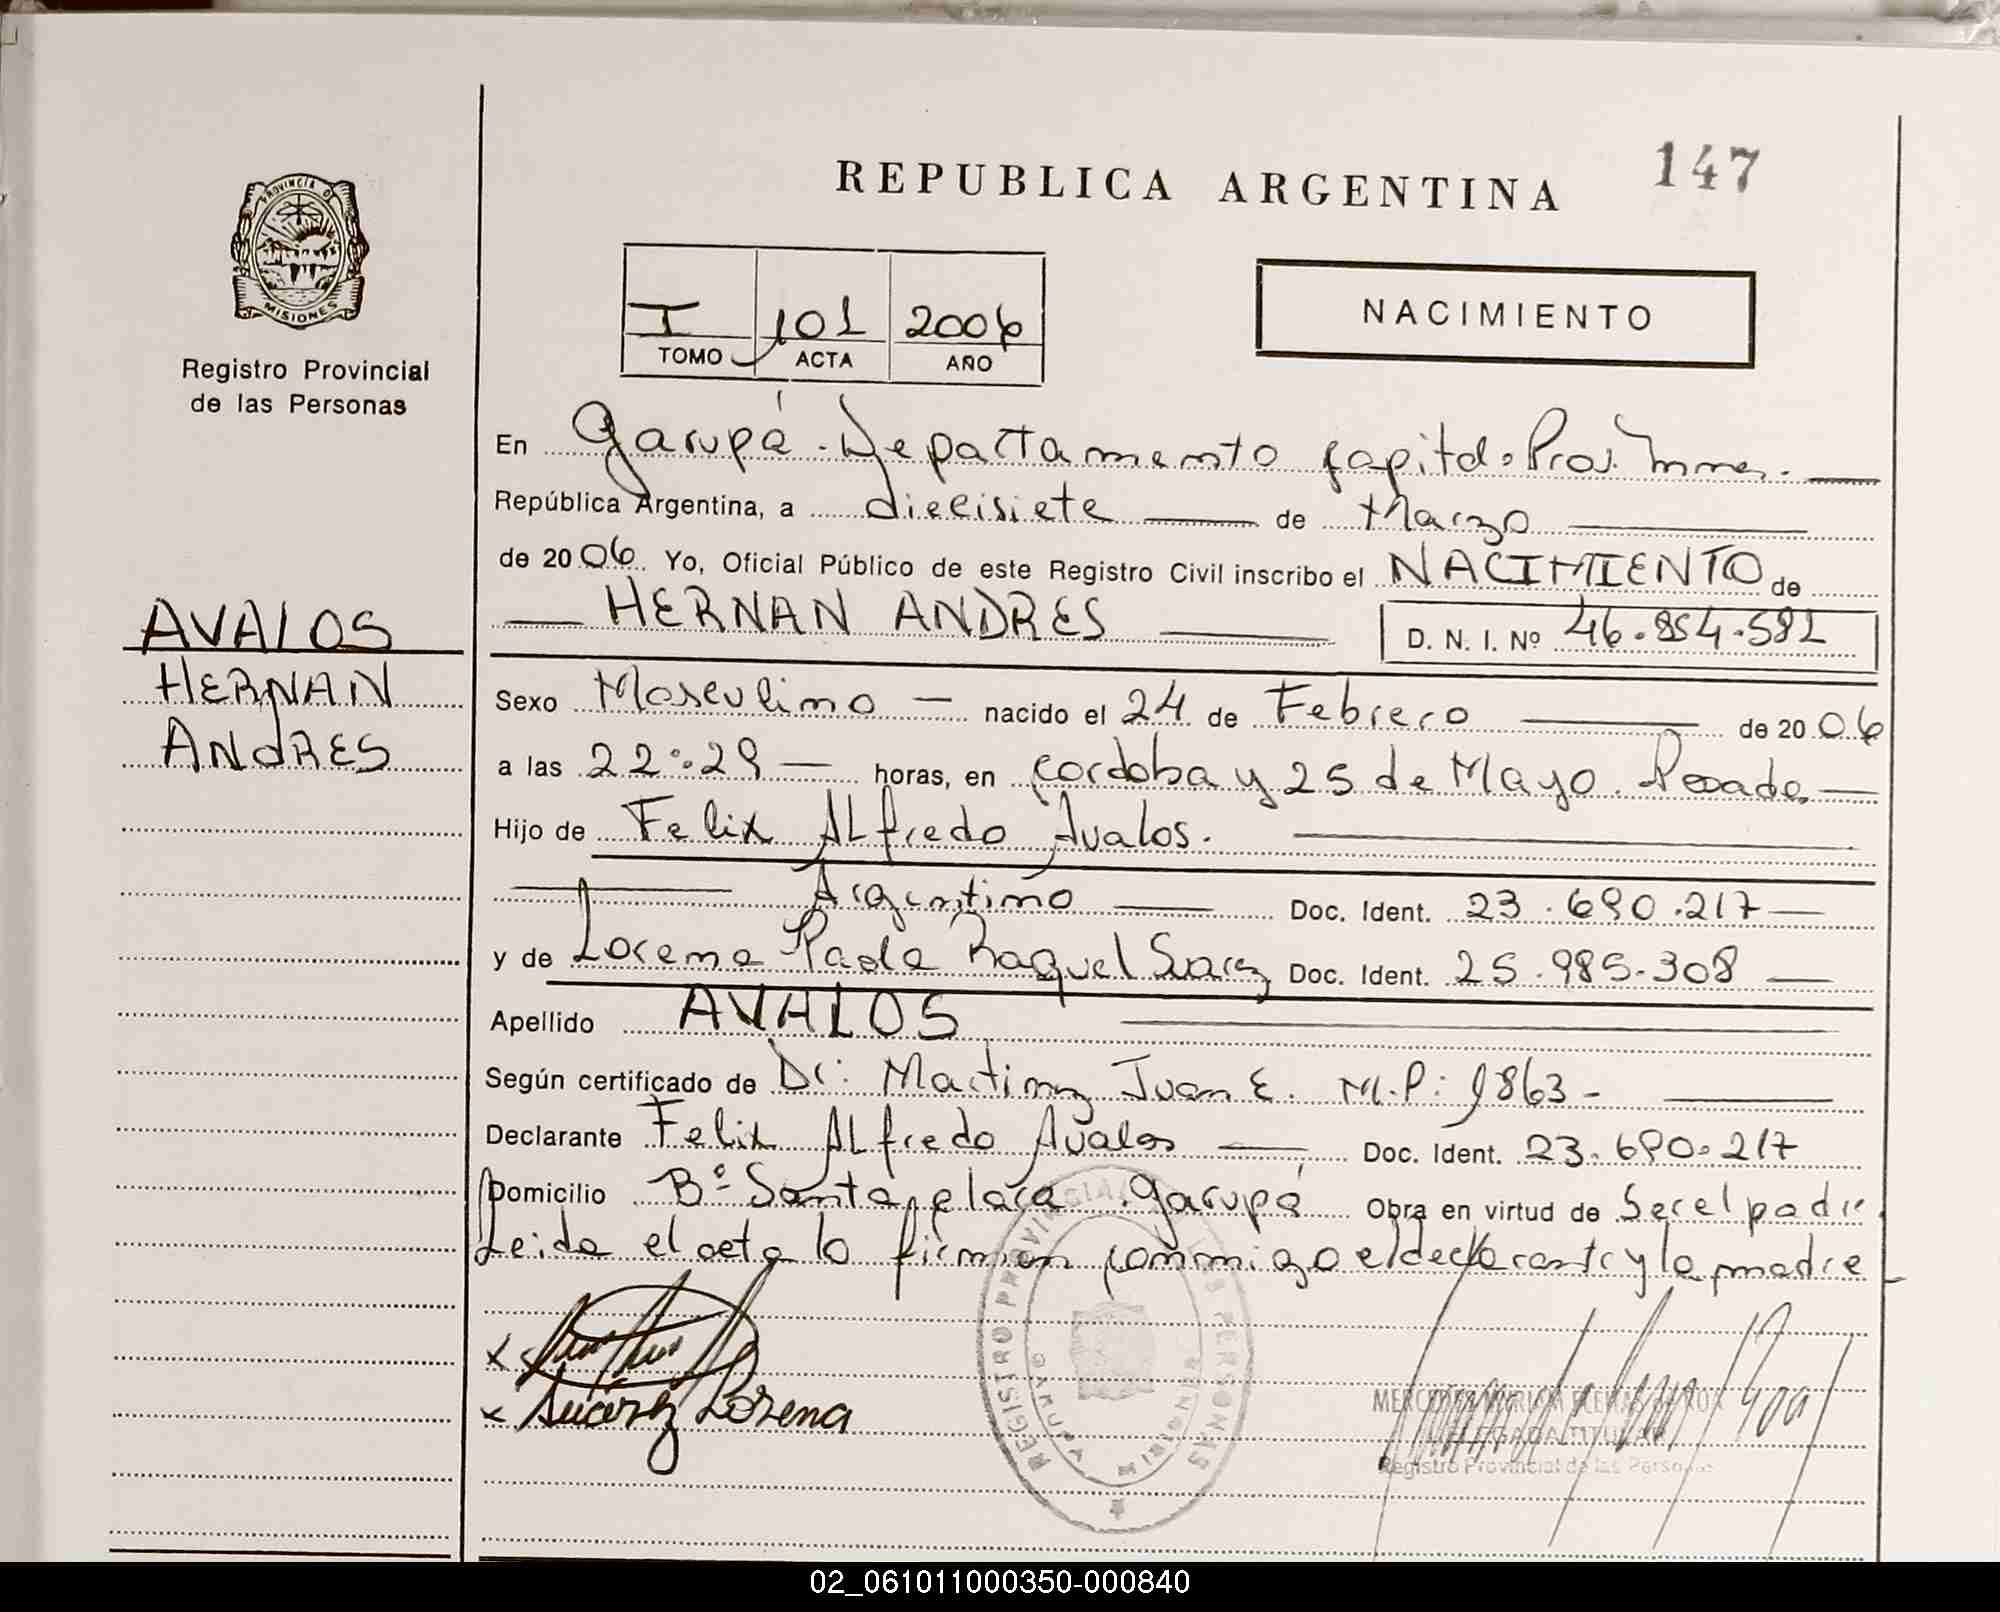 147
REPUBLICA ARGENTINA
PROVINCIA DE
MISIONES
Registro Provincial
de las Personas
I 101 2006
TOMO ACTA AÑO
NACIMIENTO
En Garupá - Departamento Capital. Prov. Mnes.
República Argentina, a diecisiete de Marzo
de 2006 Yo, Oficial Público de este Registro Civil inscribo el NACIMIENTO de
HERNAN ANDRES D. N. I. Nº 46.854.582
AVALOS
HERNAN
ANDRES
Sexo Masculino nacido el 24 de Febrero de 2006
a las 22:29 horas, en Cordoba y 25 de Mayo. Posadas
Hijo de Felix Alfredo Avalos.
Argentino Doc. Ident. 23.690.217
y de Lorena Paola Raquel Suarez Doc. Ident. 25.985.308
Apellido AVALOS
Según certificado de Dr: Martinez Juan E. M.P: 1863-
Declarante Felix Alfredo Avalos Doc. Ident. 23.690.217
Domicilio Bº Santa Clara Garupá Obra en virtud de Ser el padre.
Leida el acta lo firman conmigo el declarante y la madre
x
x Suárez Lorena
REGISTRO PROVINCIAL DE LAS PERSONAS
GARUPA
MISIONES
DELEGADA TITULAR
Registro Provincial de las Personas
02_061011000350-000840